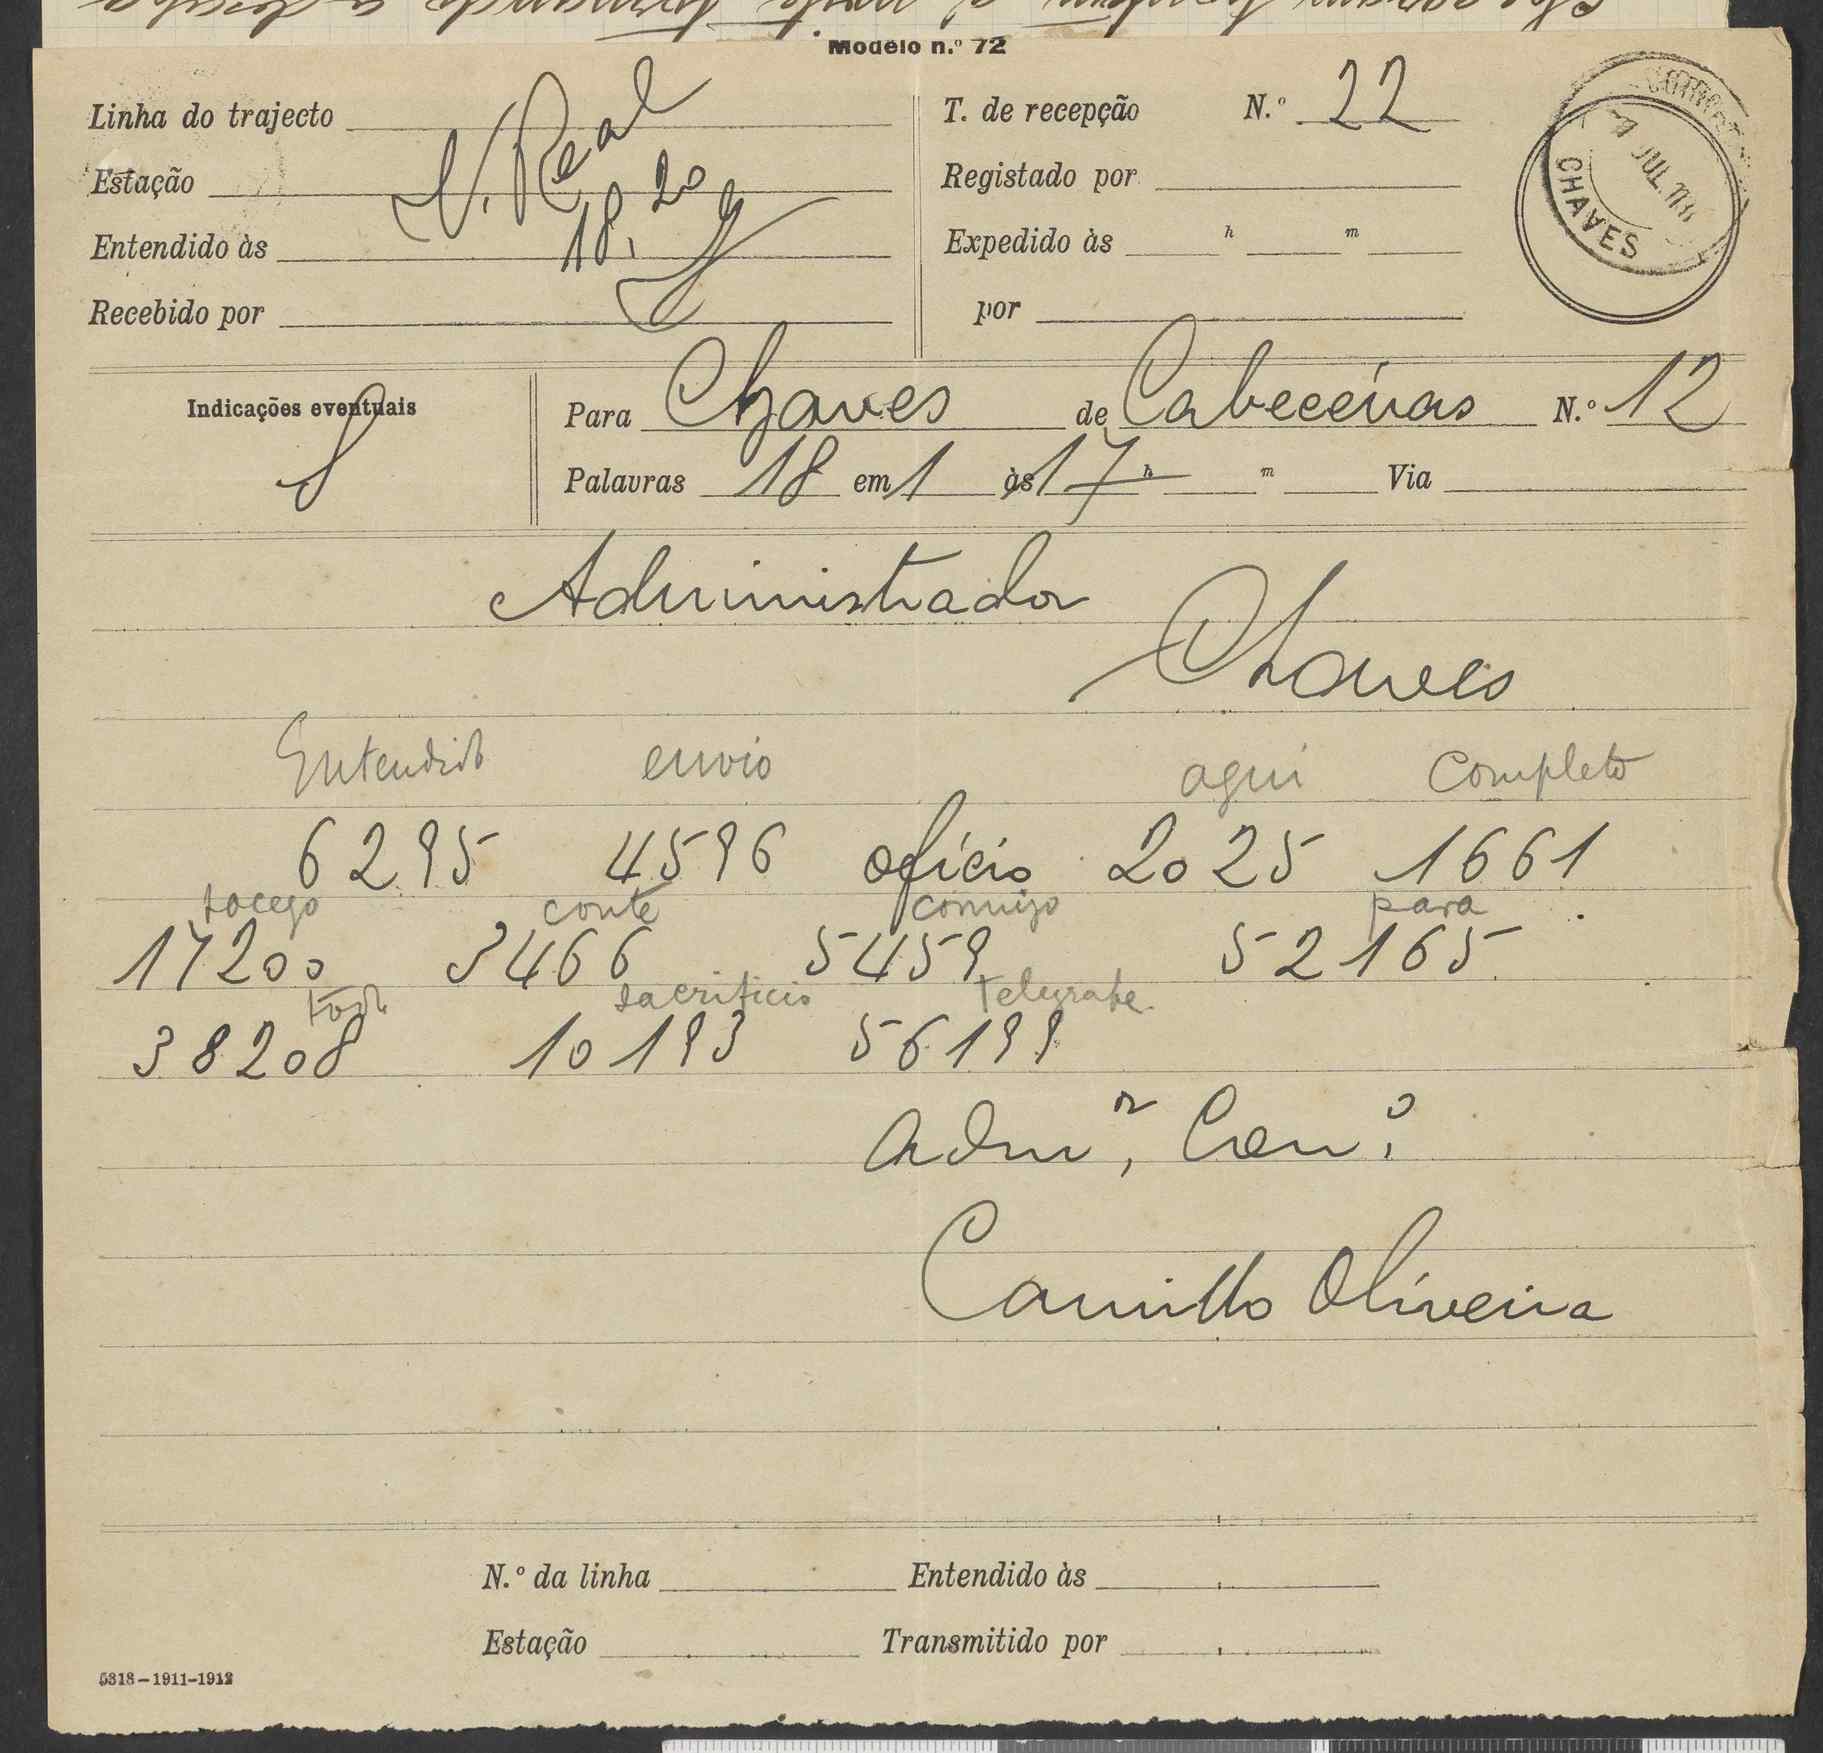 Modelo n.º 72
Linha do trajecto V. Real
Estação
Entendido às 18,20
Recebido por
T. de recepção N.º 22
Registado por
Expedido às h m
por
CORREIO
JUL
CHAVES
Indicações eventuais
S
Para Chaves de Cabeceiras N.º 12
Palavras 18 em 1 às 17 h m Via
Administrador
Chaves
Entendido envio aqui completo
6295 4596 oficio 2025 1661
socego conte comigo para
17200 3466 5459 52165
todo sacrificio telegrafe
38208 10193 56199
Admor, Con.º
Camillo Oliveira
N.º da linha Entendido às
Estação Transmitido por
5318-1911-1912